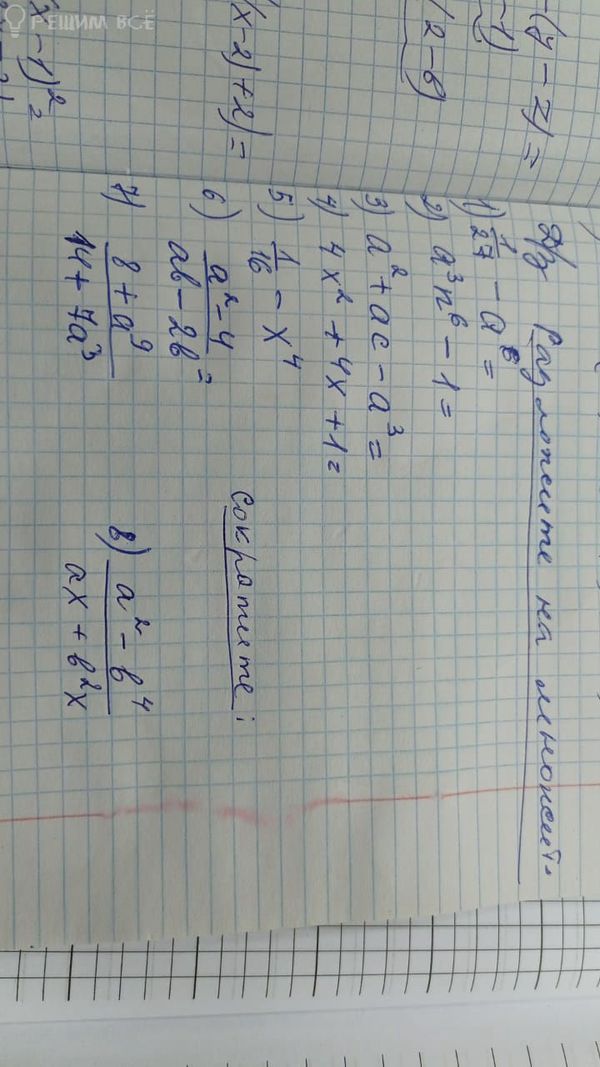 РЕШИМ ВСЁ
-(y-z)=
-1)
(2-b)
(x-2)+2)=
x-1)²=
Д/з Разложите на множит.
1) 1/27 - a⁶ =
2) a³n⁶ - 1 =
3) a² + ac - a³ =
4) 4x² + 4x + 1 =
5) 1/16 - x⁴
Сократите:
6) a² - 4 / ab - 2b =
7) 8 + a⁹ / 14 + 7a³
8) a² - b⁴ / ax + b²x